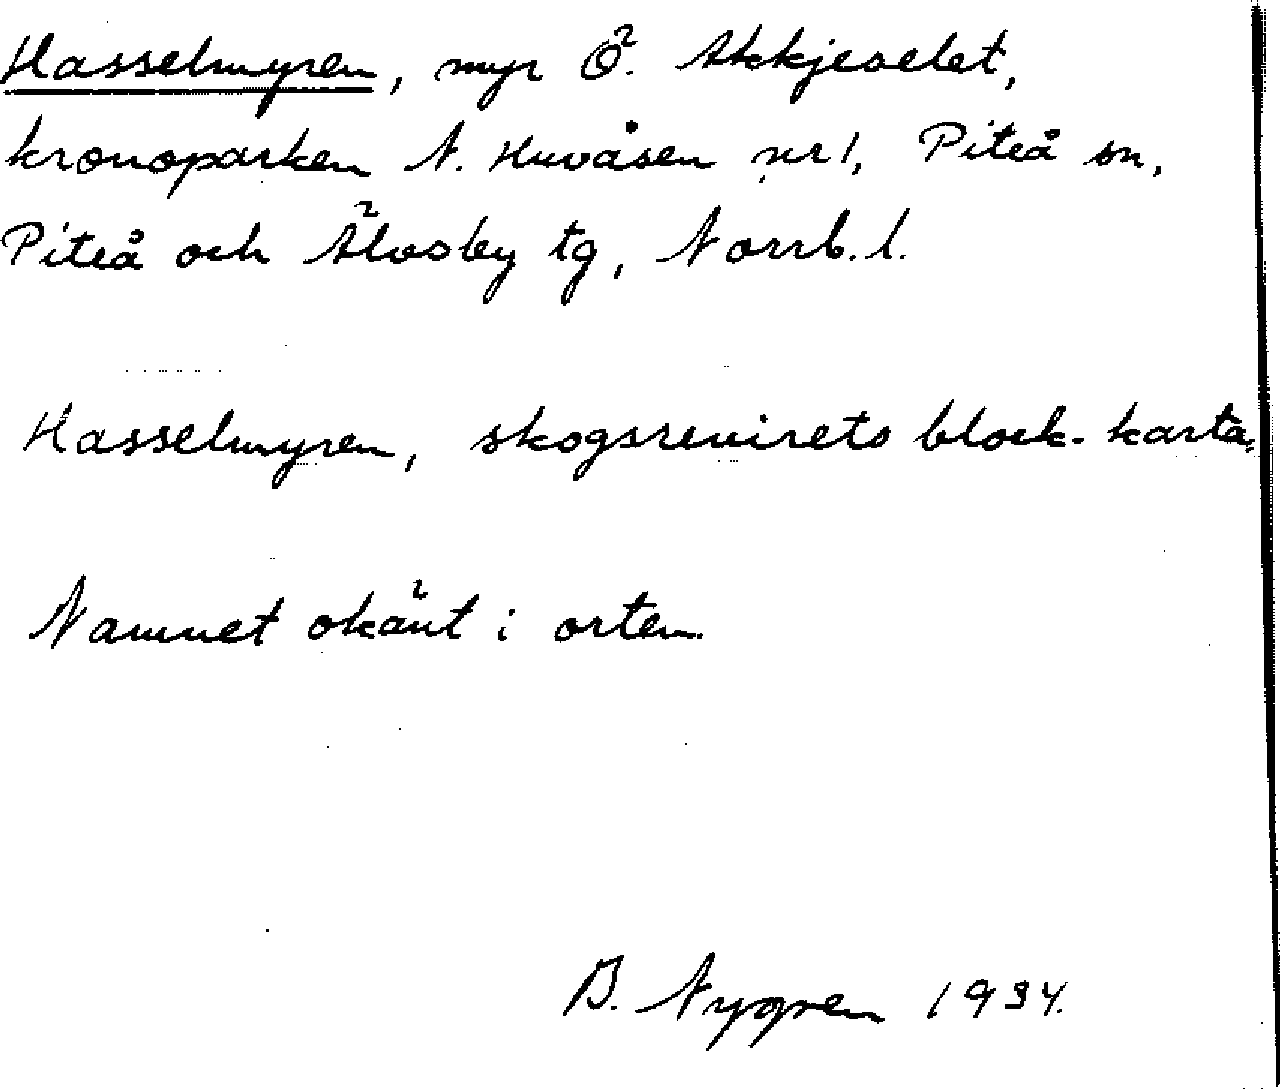 Hasselmyren, myr Ö. Akkjevelet,
kronoparken N. Huvåsen nr 1, Piteå sn,
Piteå och Älvsby tg, Norrb. l.
Hasselmyren, skogsrevirets block-karta.
Namnet okänt i orten.
B. Nygren 1934.